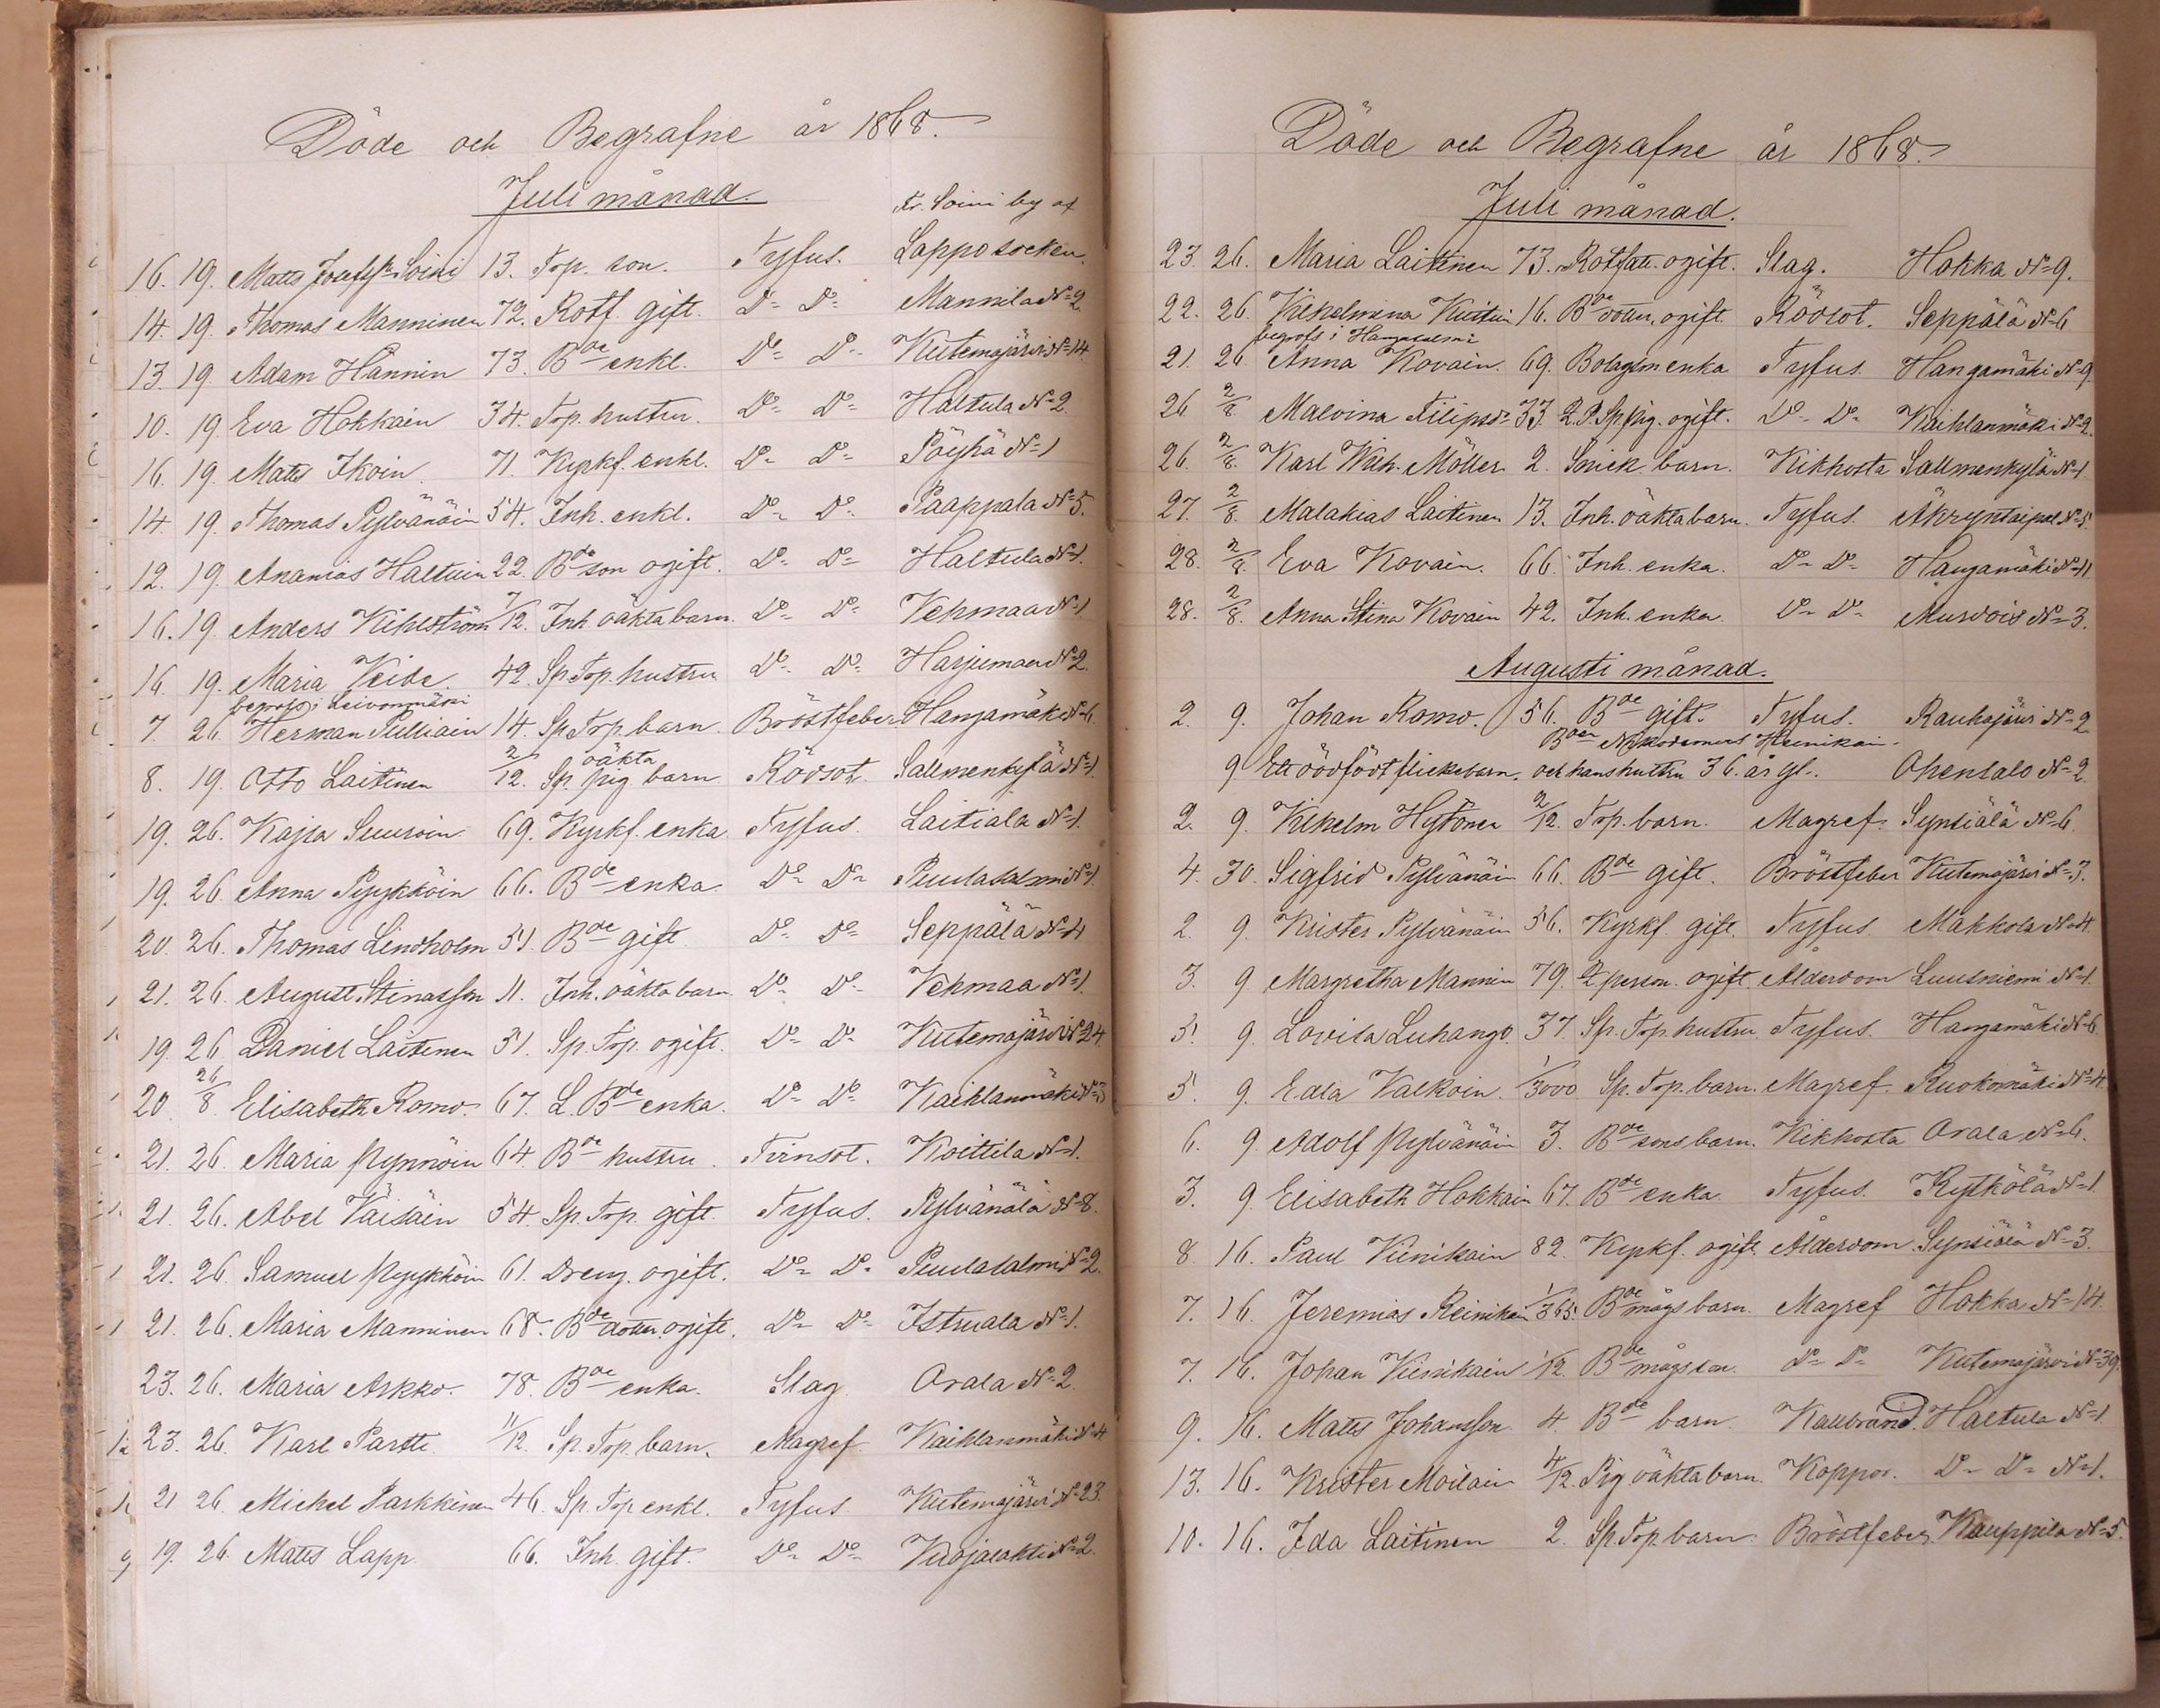 Döde och Begrafne år 1868.
Juli månad.
Fr. Soini by af
16. 19. Matts Josefss. Soini 13. Torp. son. Tyfus. Lappo socken.
14. 19. Thomas Manninen 72. Rotf. gift. Do Do Mannila No 2
13. 19. Adam Hännin 73. Bde enkl. Do Do Kutemajärvi No 14.
10. 19. Eva Hokkain 34. Torp. hustru. Do Do Haltula No 2
16. 19. Matts Ikoin 71. Kyrkf. enkl. Do Do Pöyhä No 1
14. 19. Thomas Pylvänäin 54. Inh. enkl. Do Do Paappala No 5.
12. 19. Ananias Haltuin 22. Bde son ogift. Do Do Haltula No 1.
16. 19. Anders Kihlström 7/12. Inh. oäkta barn. Do Do Vehmaa No 1
16. 19. Maria Veide 42. Sp. Torp. hustru Do Do Harjumaa No 2.
begrafs i Leivonmäki
7. 26. Herman Pulliain 14. Sp. Torp. barn. Bröstfeber Hangamäki No 6.
8. 19. Otto Laitinen 2/12. Sp. pig. oäkta barn Rödsot. Salmenkylä No 1
19. 26. Kajsa Suuroin 69. Kyrkf. enka Tyfus. Laitiala No 1.
19. 26. Anna Pyykköin 66. Bde enka. Do Do Puulasalmi No 1.
20. 26. Thomas Lindholm 51. Bde gift Do Do Seppälä No 4
21. 26. August Stinasson 11. Inh. oäkta barn Do Do Vehmaa No 1.
19. 26. Daniel Laitinen 51. Sp. Torp. ogift. Do Do Kutemajärvi No 24
20 26/8 Elisabeth Romo. 67. L. Bde enka. Do Do Kaihlanmäki No 3
21. 26. Maria Pynnöin 64. Bde hustru. Tvinsot. Koittila No 1.
21. 26. Abel Väisäin 54. Sp. Torp. gift. Tyfus. Pylvänälä No 8.
21. 26. Samuel Pyykköin 61. Dreng. ogift. Do Do Puulasalmi No 2.
21. 26. Maria Manninen 68. Bde dotter. ogift. Do Do Istruala No 1.
23. 26. Maria Askko. 78. Bde enka. Slag Orala No 2
23. 26. Karl Partti 11/12. Sp. Torp. barn. Magref. Kaihlanmäki No 4
21. 26. Michel Parkkinen 46. Sp. Torp enkl. Tyfus. Kutemajärvi No 23.
19. 26. Matts Lapp. 66. Inh. gift. Do Do Vuojalahti No 2.
Döde och Begrafne år 1868.
Juli månad.
23. 26. Maria Laitinen 73. Rotfatt. ogift. Slag. Hokka No 9.
22. 26. Vilhelmina Kuitun 16. Bde dotter, ogift. Rödsot. Seppälä No 6
begrafs i Hangasalmi
21. 26. Anna Kovain. 69. Bolagsm enka Tyfus. Hangamäki No 9
26. 2/8 Malvina Filipsdr 33. L. P. Sp. pig. ogift. Do Do Kaihlanmäki No 2.
26. 2/8. Karl Wilh. Möller 2. Snick. barn. Kikhosta Salmenkylä No 1
27. 2/8. Malakias Laitinen 13. Inh. oäkta barn. Tyfus.
28. 2/8. Eva Kovain. 66. Inh. enka. Do Do Hangamäki No 11
28. 2/8. Anna Stina Kovain 42. Inh. enka Do Do No 3.
Augusti månad.
2. 9. Johan Romo. 56. Bde gift. Tyfus. Rauhajärvi No 2
Bden Nikodemus Heinikai
9 Ett dödfödt flickebarn. och hans hustru 36. år gl. Ohensalo No 2
2. 9. Vilhelm Hytönen 2/12. Torp. barn. Magref. Synsiälä No 6
4. 30. Sigfrid Pylvänäin 66. Bde gift. Bröstfeber Kutemajärvi No 3.
2. 9. Krister Pylvänäin 56. Kyrkf. gift. Tyfus. Makkola No 4.
3. 9. Margretha Mannin 79. person. ogift Ålderdom Luusniemi No 1.
5. 9. Lovisa Luhango. 37. Sp. Torp. hustru Tyfus. Hangamäki No 6
5. 9. Edla Valkoin. 1/3000 Sp. Torp. barn. Magref. Ruokomäki No 4
6. 9. Adolf Pylvänäin 3. Bde sons barn. Kikhosta Orala No 6.
3. 9. Elisabeth Hokkain 67. Bde enka Tyfus. Kytkölä No 1
8. 16. Paul Viinikain 82. Kyrkf. ogift. Ålderdom Synsiälä No 3.
7. 16. Jeremias Reinikai 1/365. Bde mågs barn. Magref Hokka No 14.
7. 16. Johan Viinikain 1/12. Bde mågs son. Do Do Kutemajärvi No 39.
9. 16. Matts Johansson 4. Bde barn Kallbrand. Haltula No 1
13. 16. Krister Moilain 4/12. Pig oäkta barn. Koppor. Do Do No 1.
10. 16. Ida Laitinen 2. Sp. Torp. barn. Bröstfeber. Kauppila No 5.